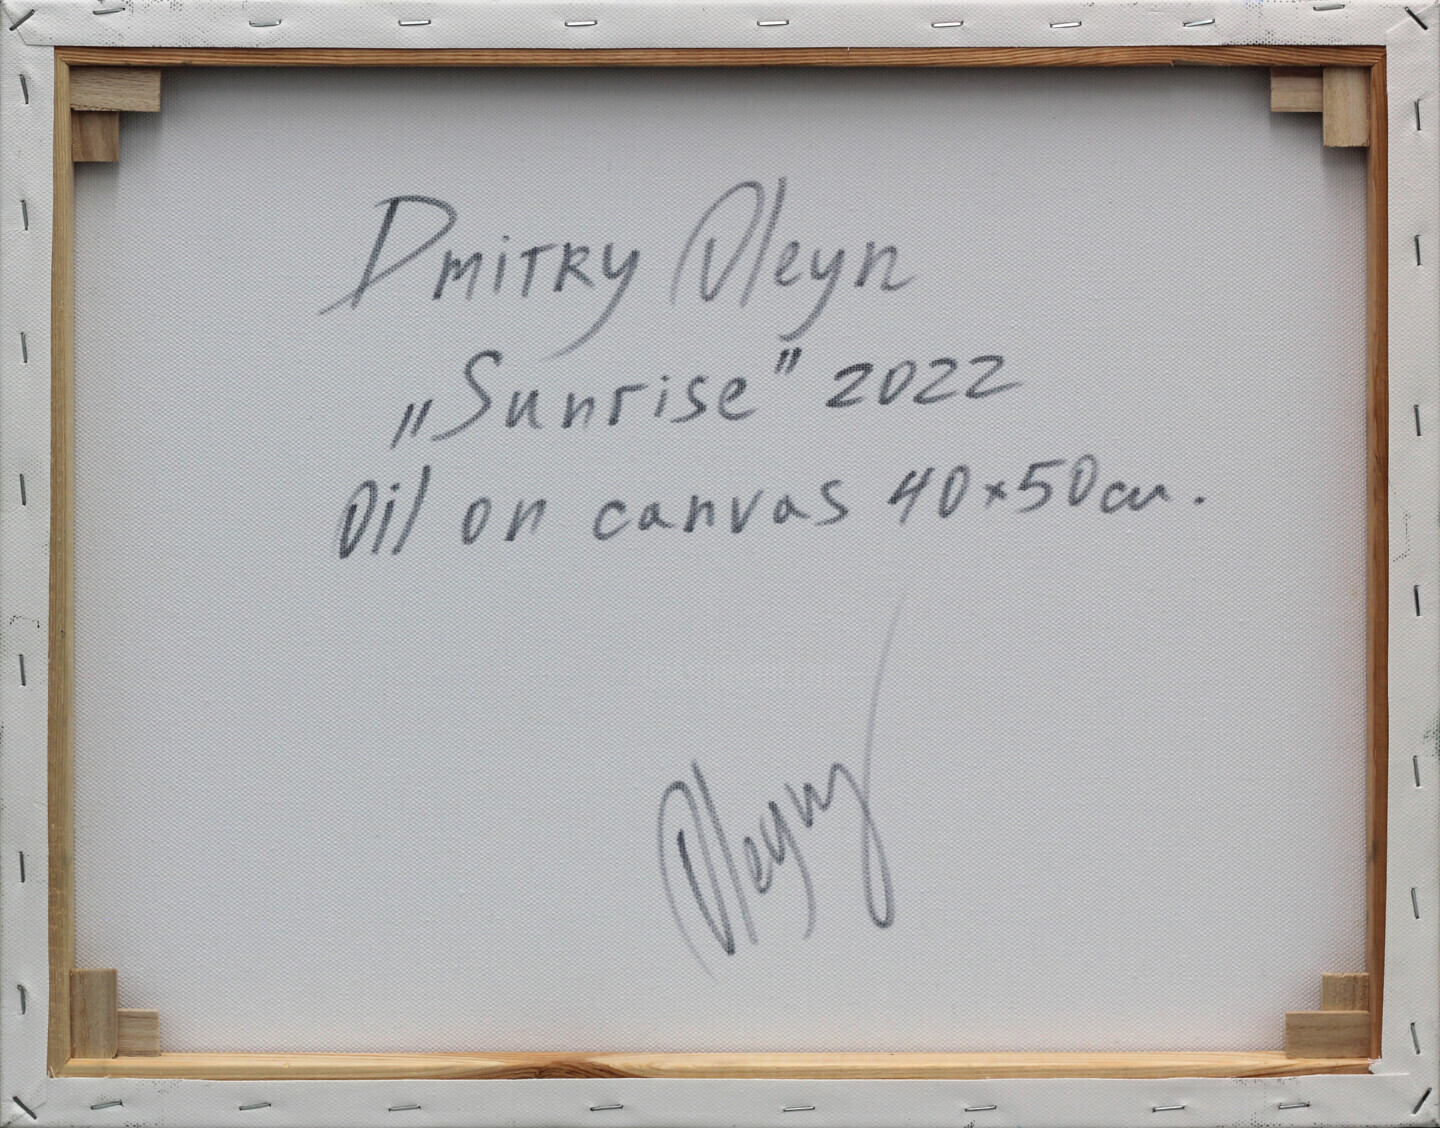 Dmitry Oleyn
„Sunrise" 2022
Oil on canvas 40×50cm.
Oleyn